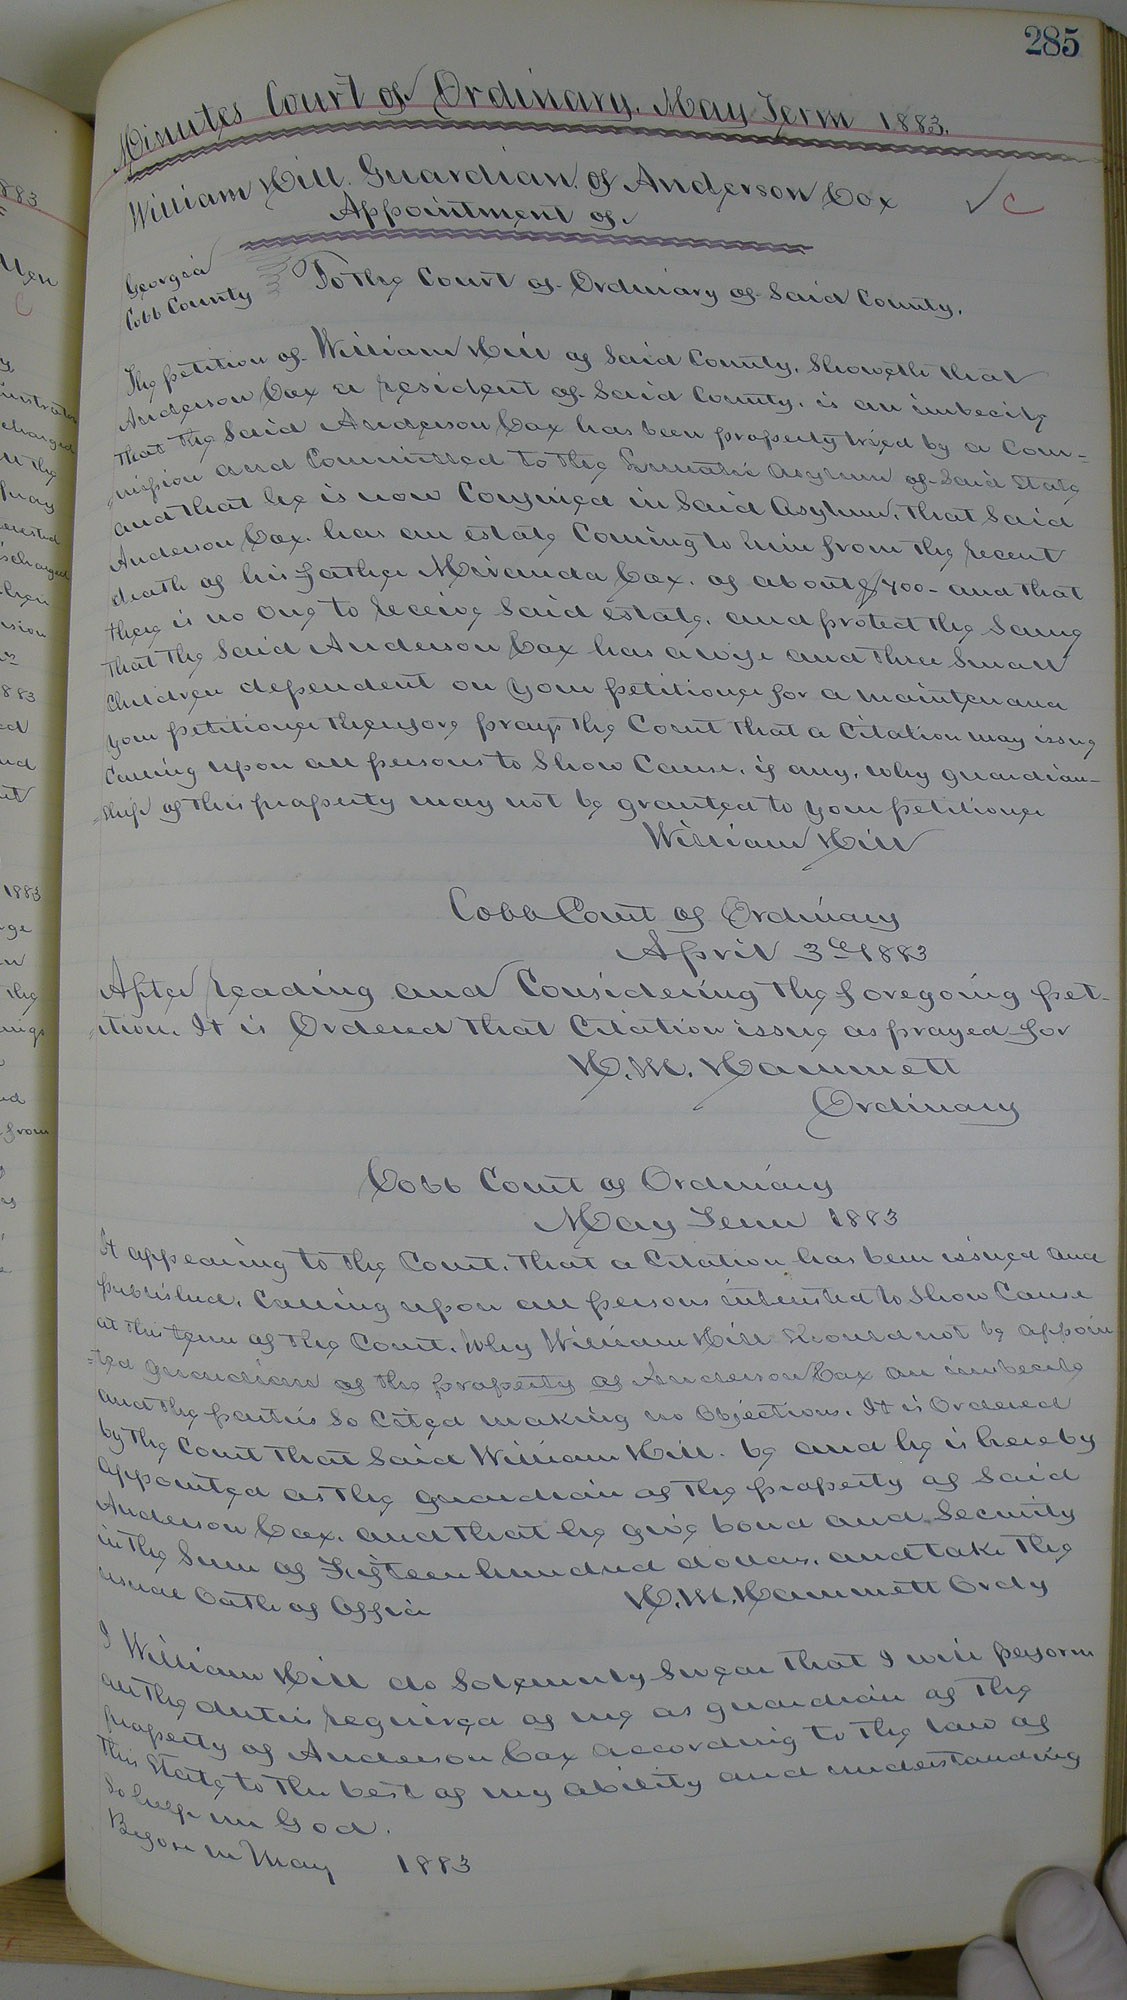 285
Minutes Court of Ordinary. May Term 1883.
William Hill Guardian of Anderson Cox
Appointment of
C
Georgia
Cobb County
To the Court of Ordinary of Said County.
The petition of William Hill of Said County, Showeth that
Anderson Cox a resident of Said County, is an imbecile
that the Said Anderson Cox has been properly tried by a Com-
-mission and Committed to the Lunatic Asylum of Said State
and that he is now Confined in Said Asylum, that Said
Anderson Cox, has an estate Coming to him from the recent
death of his father Miranda Cox, of about $700- and that
there is no one to receive Said estate, and protect the Same
that the Said Anderson Cox has a wife and three Small
Children dependent on your petitioner for a maintenance
your petitioner therefore prays the Court that a Citation may issue
Calling upon all persons to Show Cause, if any, why guardian-
ship of this property may not be granted to your petitioner
William Hill
Cobb Court of Ordinary
April 3rd 1883
After reading and Considering the foregoing pet-
-ition, It is Ordered that Citation issue as prayed for
H. M. Hammett
Ordinary
Cobb Court of Ordinary
May Term 1883
It appearing to the Court, that a Citation has been issued and
published, Calling upon all persons interested to Show Cause
at this term of the Court, Why William Hill Should not be appoin
=ted guardian of the property of Anderson Cox an imbecile
and the parties So Cited making no Objections, It is Ordered
by the Court that Said William Hill. be and he is hereby
appointed as the guardian of the property of Said
Anderson Cox, and that he give bond and Security
in the Sum of Fifteen hundred dollars, and take the
usual Oath of Office
H. M. Hammett Ordy
I William Hill do Solemnly Swear that I will perform
all the duties required of me as guardian of the
property of Anderson Cox according to the law of
this State to the best of my ability and understanding
So help me God.
Before me May 1883